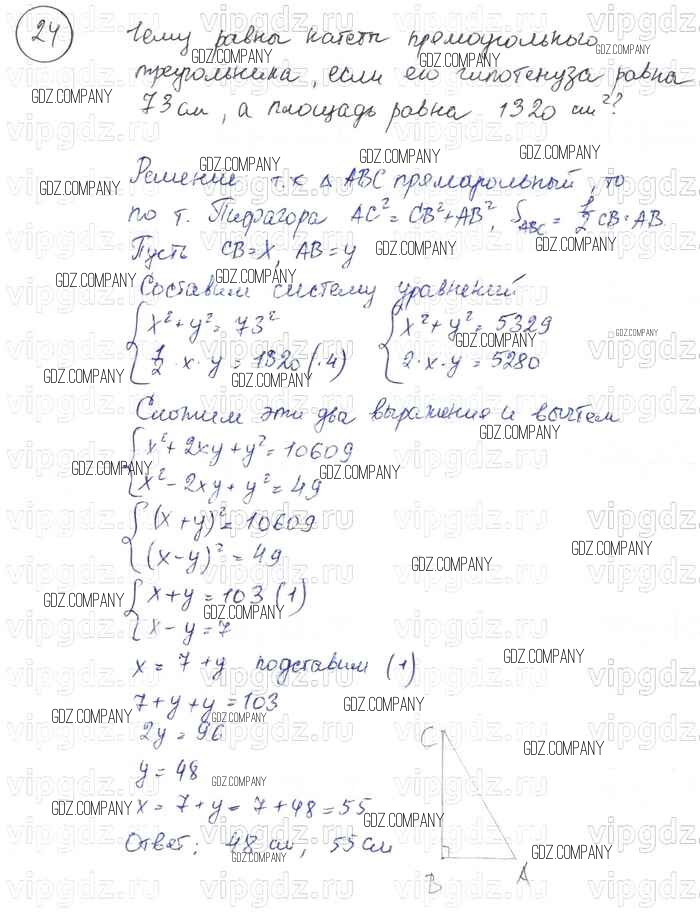 24
Чему равны катеты прямоугольного
треугольника, если его гипотенуза равна
73 см, а площадь равна 1320 см²?
Решение т.к △ ABC прямоугольный, то
по т. Пифагора AC² = CB² + AB², S_ABC = 1/2 CB · AB
Пусть CB = x, AB = y
Составим систему уравнений
{ x² + y² = 73² { x² + y² = 5329
{ 1/2 · x · y = 1320 (·4) { 2 · x · y = 5280
Сложим эти два выражения и вычтем
{ x² + 2xy + y² = 10609
{ x² - 2xy + y² = 49
{ (x + y)² = 10609
{ (x - y)² = 49
{ x + y = 103 (1)
{ x - y = 7
x = 7 + y подставим (1)
7 + y + y = 103
2y = 96
y = 48
x = 7 + y = 7 + 48 = 55
Ответ: 48 см, 55 см
C
B A
GDZ.COMPANY
vipgdz.ru